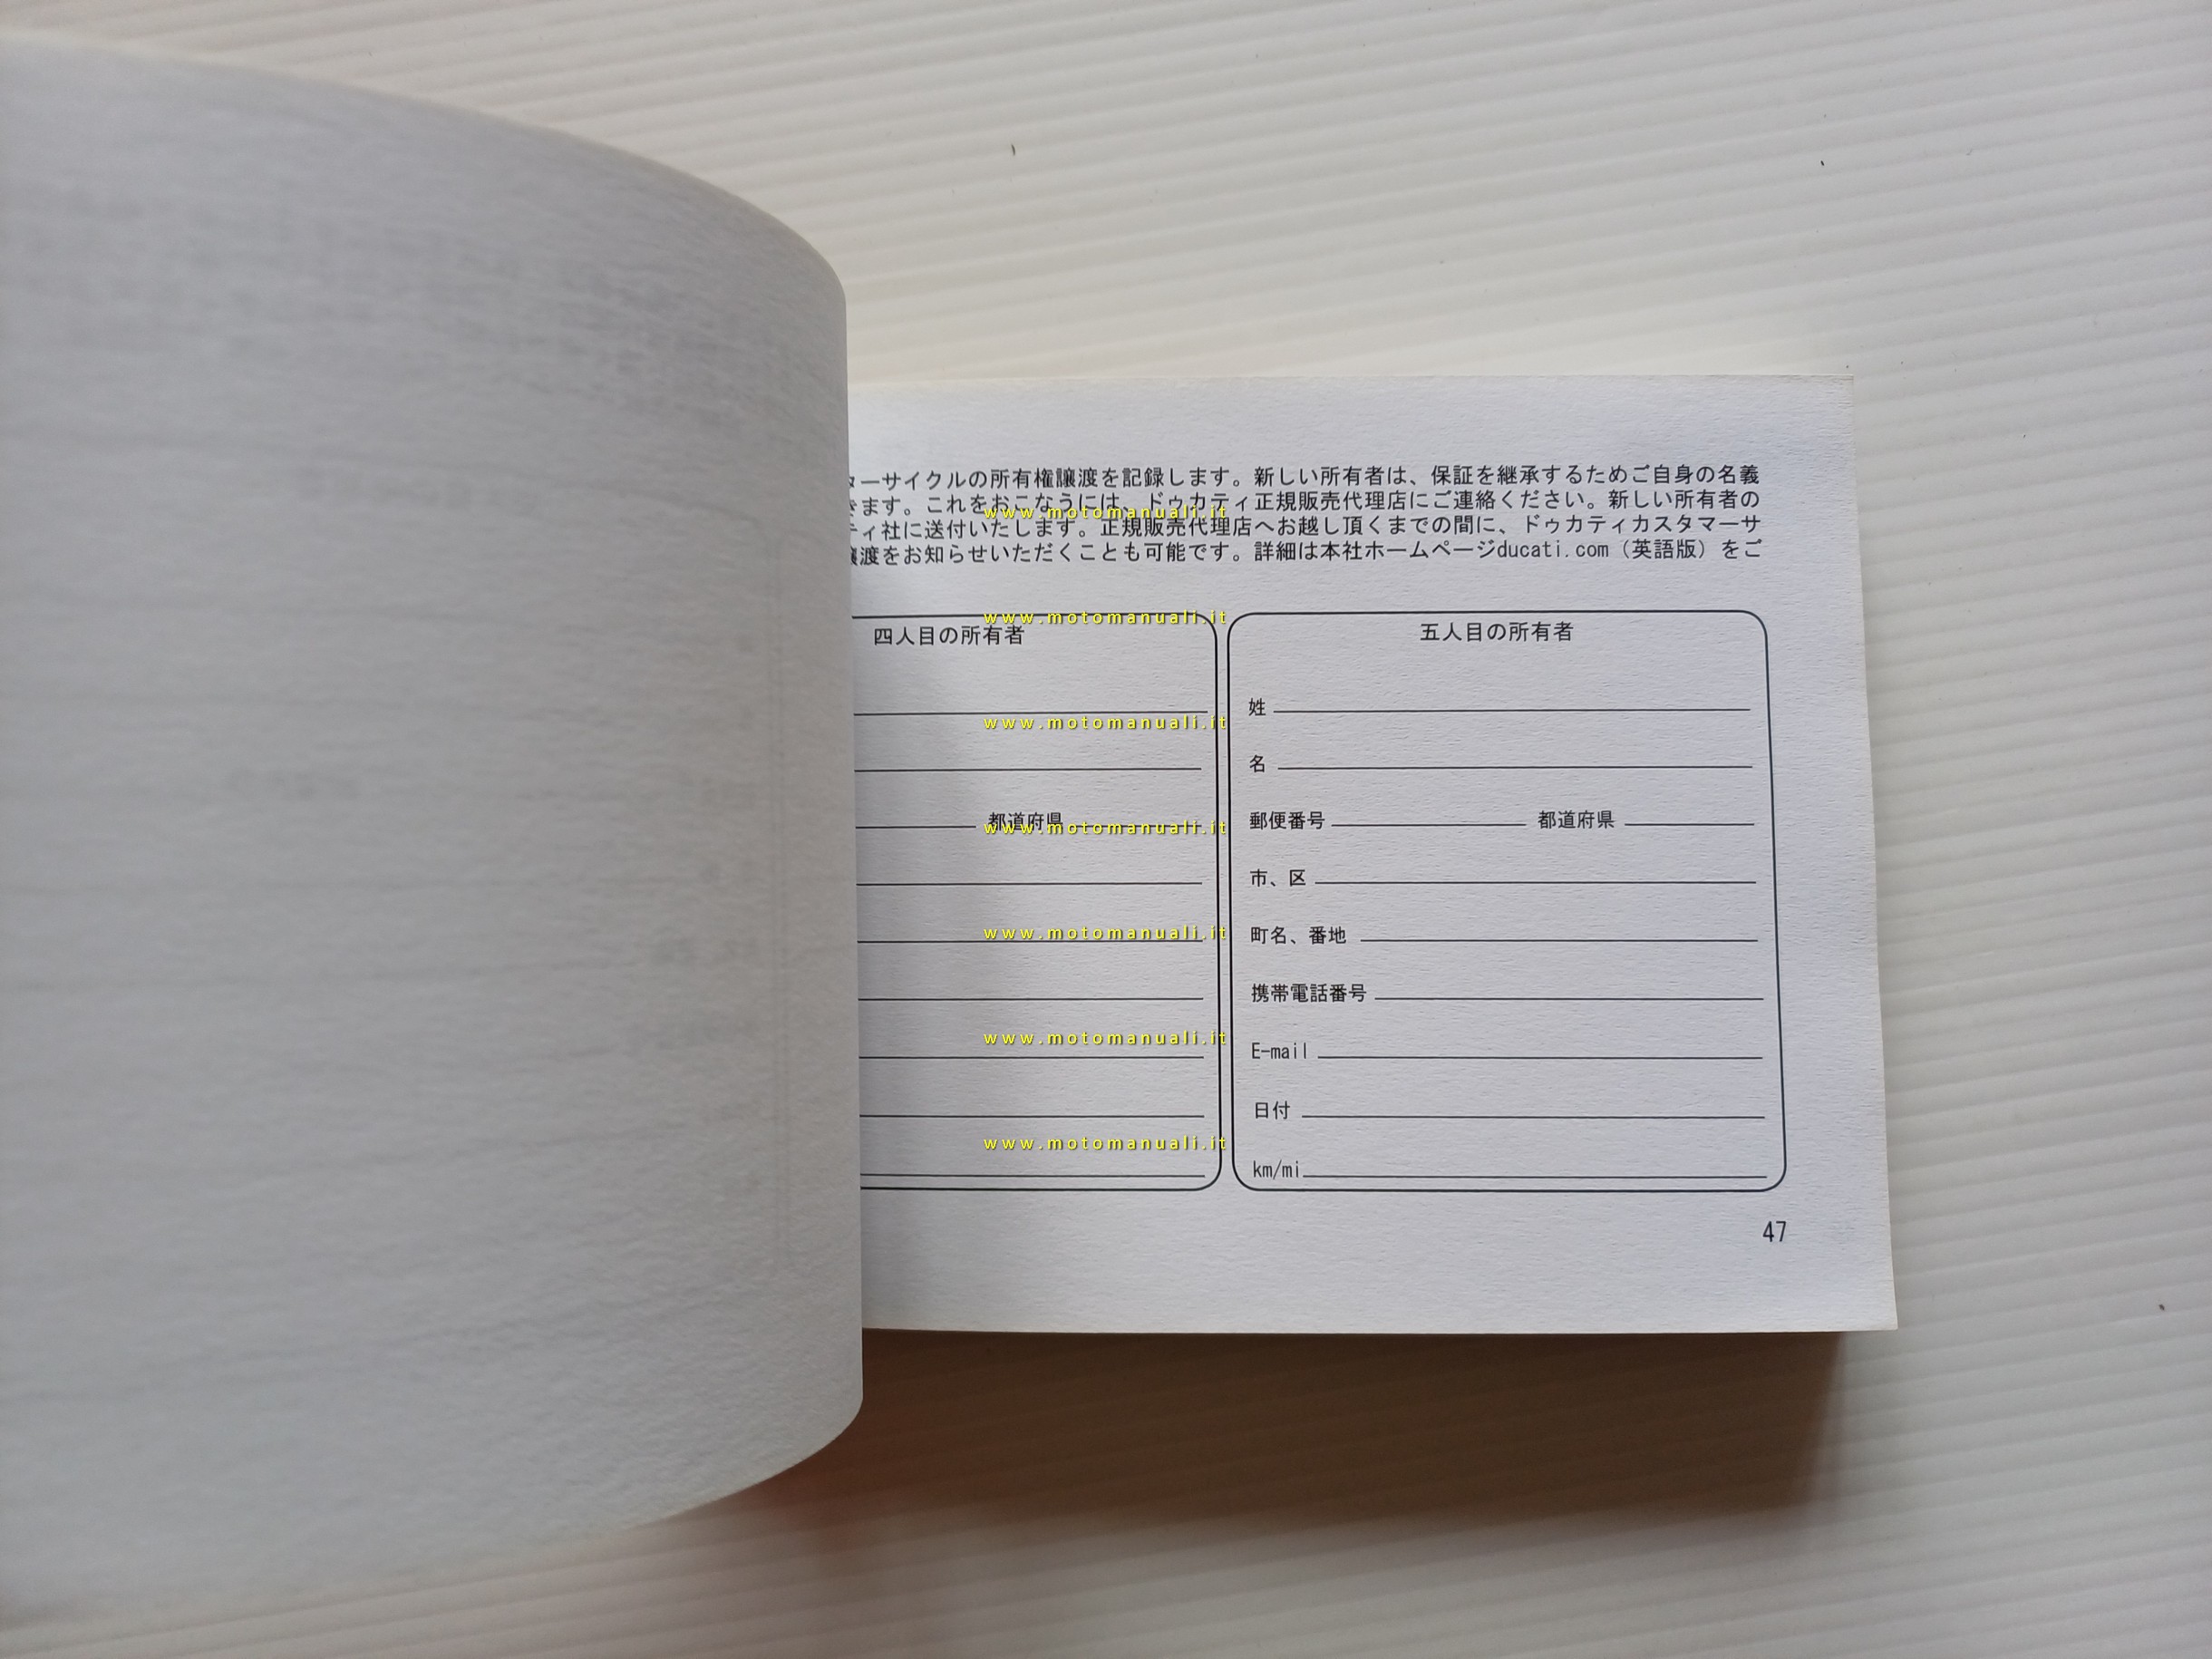 ーサイクルの所有権譲渡を記録します。新しい所有者は、保証を継承するためご自身の名義
きます。これをおこなうには、ドゥカティ正規販売代理店にご連絡ください。新しい所有者の
ティ社に送付いたします。正規販売代理店へお越し頂くまでの間に、ドゥカティカスタマーサ
譲渡をお知らせいただくことも可能です。詳細は本社ホームページducati.com（英語版）をご
www.motomanuali.it
www.motomanuali.it
四人目の所有者
www.motomanuali.it
都道府県
www.motomanuali.it
www.motomanuali.it
www.motomanuali.it
www.motomanuali.it
五人目の所有者
姓
名
郵便番号 都道府県
市、区
町名、番地
携帯電話番号
E-mail
日付
km/mi
47